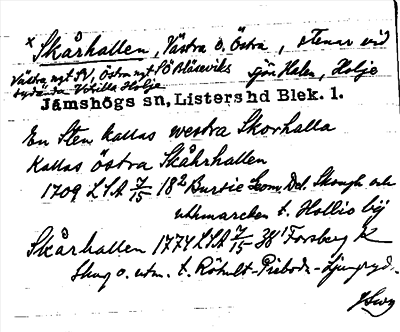 × Skårhallen, Västra o. Östra, stenar vid
Västra mgt SV, Östra mgt SÖ Blåseviks sjön Halen, Holje
sydända Vililla Holje
Jämshögs sn, Listers hd Blek. 1.
En Sten kallas westra Skorhalla
Kallas östra Skåhrhallen
1709 LSA 7/15 18² Bursie Geom. Del. Skough och
uthmarcken t. Hollie bÿ
Skårhallen 1774 LSA 7/15 38' Forsberg K
Skog o. utm. t. Röhult-Pieboda-Ljungryd.